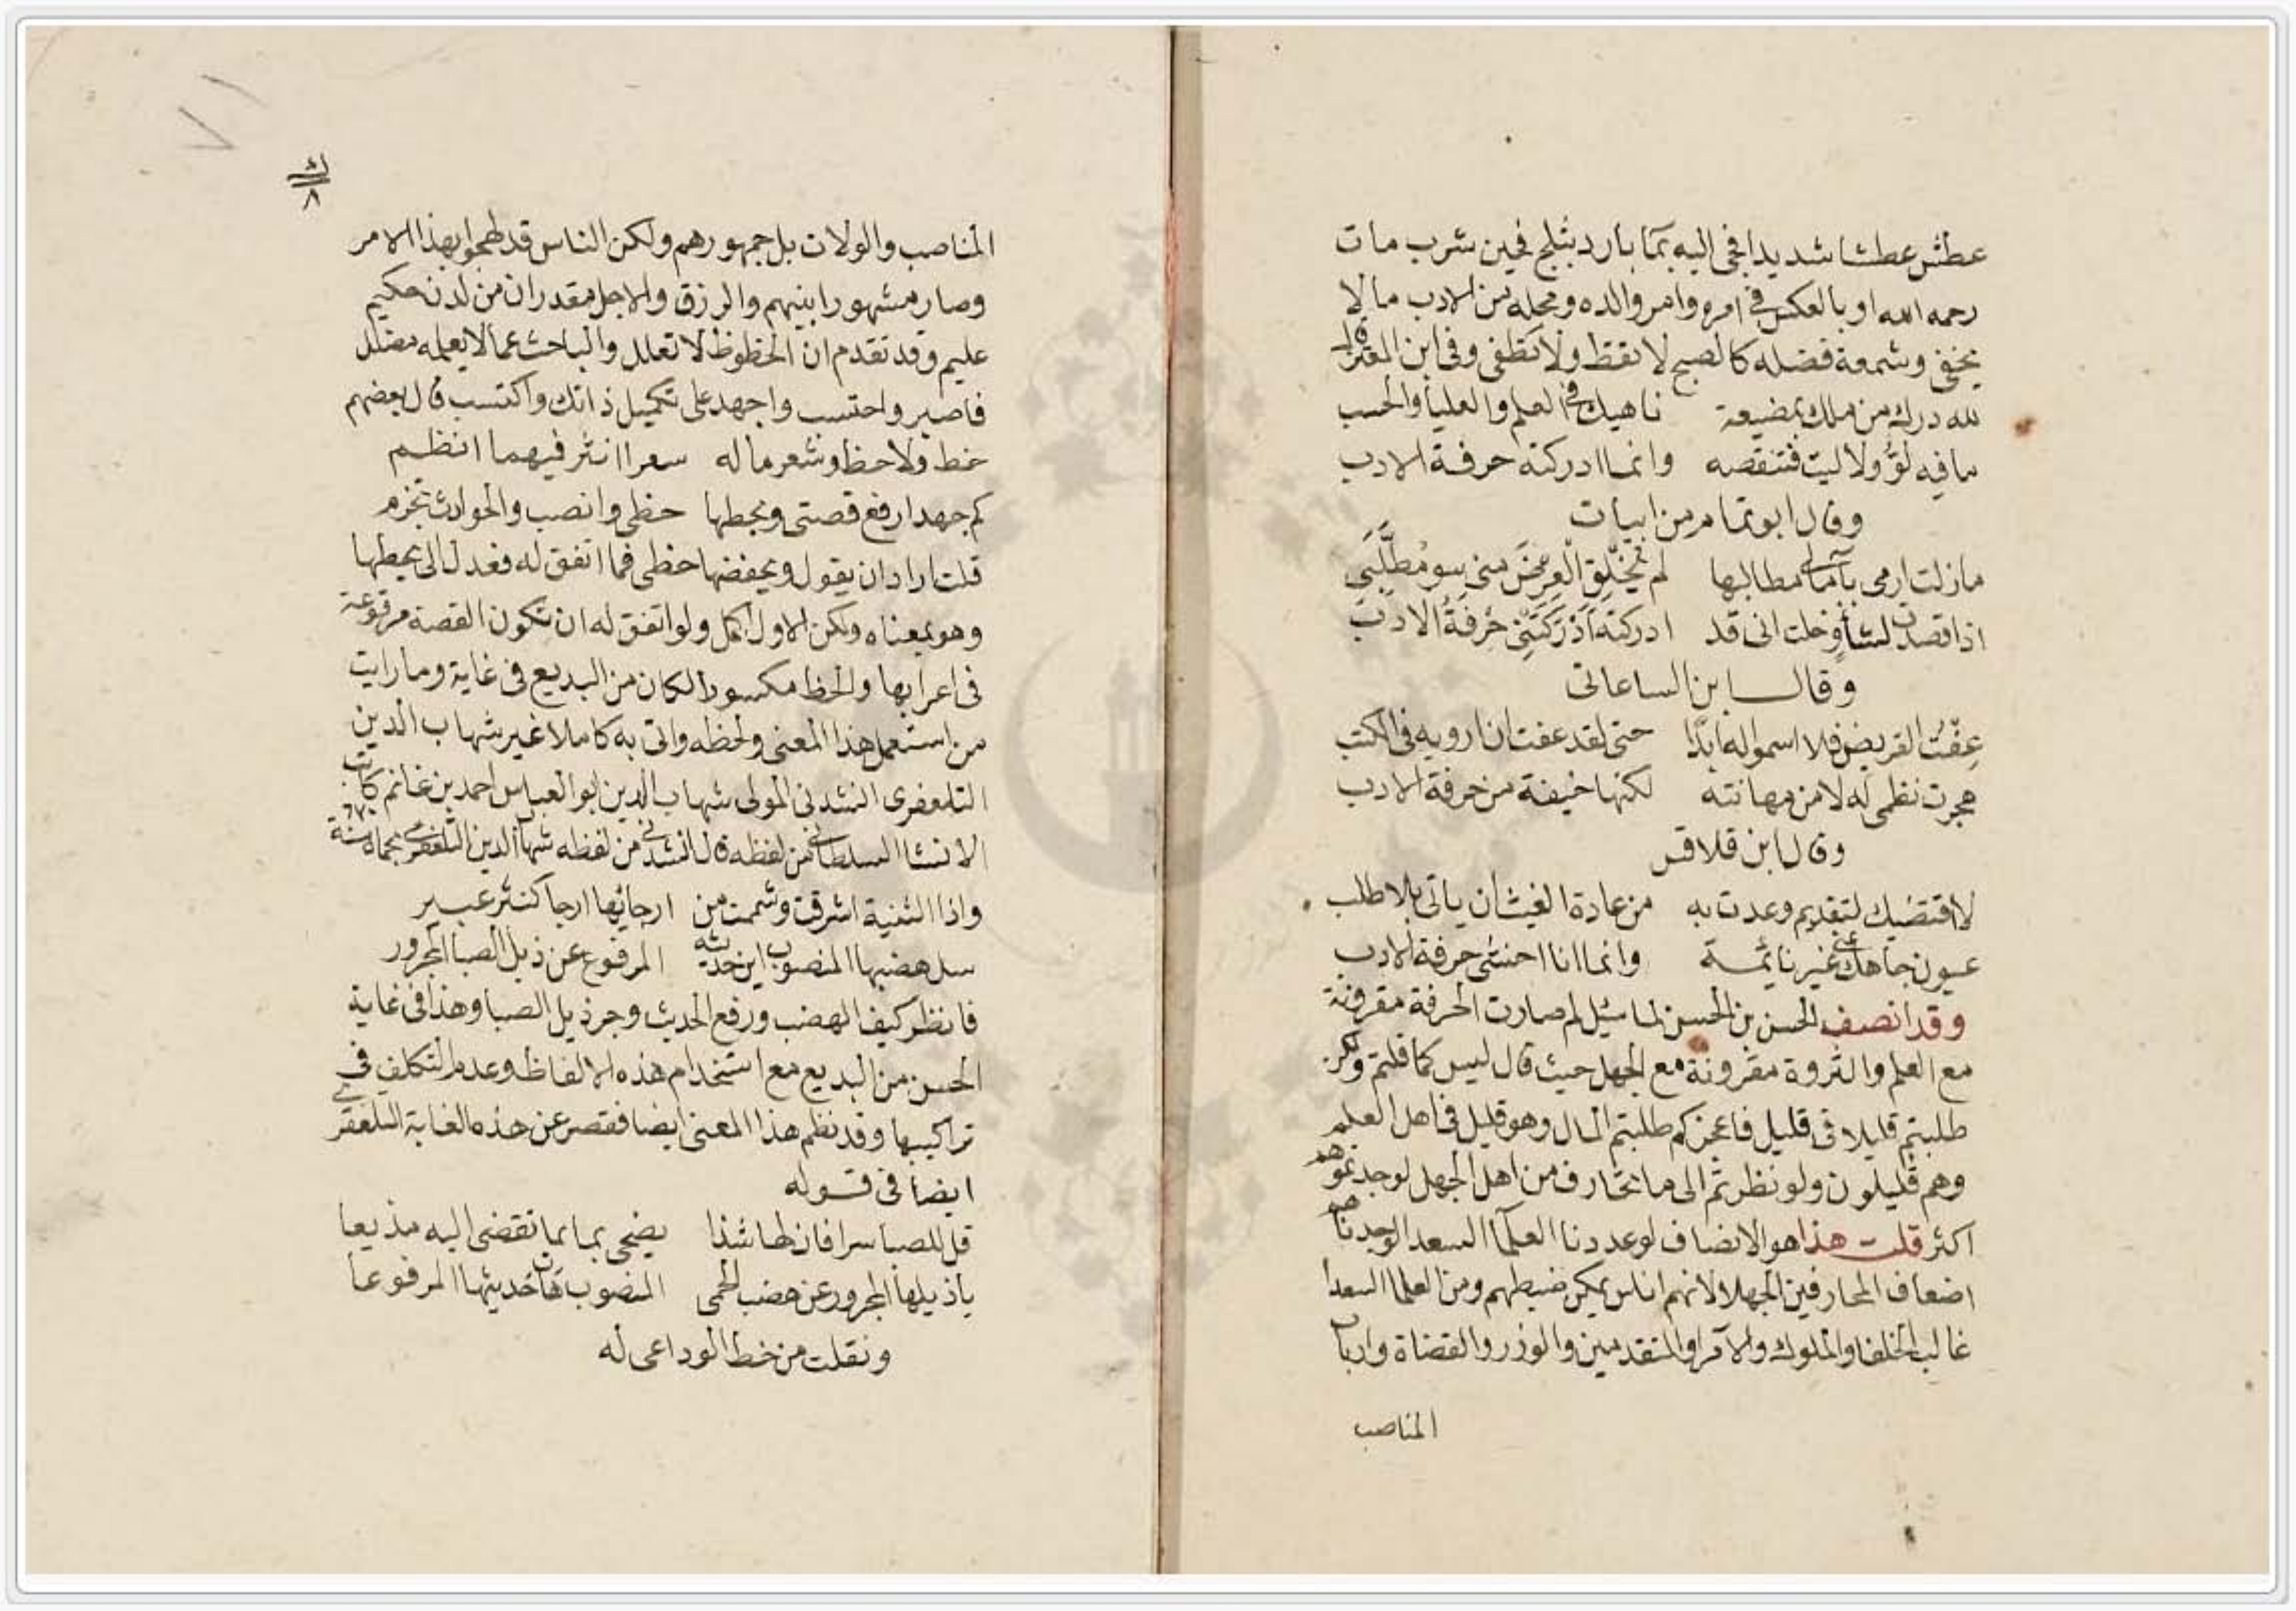 عطش عطشا شديدا فجئ اليه بمآ بارد بثلج فحين شرب مات
رحمه الله او بالعكس في امره وامر والده ومحله من الادب ما لا
يخفى وشمعة فضله كالصبح لا تقط ولا تطفى وفي ابن المعتز قال
لله درك من ملك بمضيعة ناهيك في العلم والعليا والحسب
ما فيه لوٌّ ولا ليت فتنقصه وانما ادركته حرفة الادب
وقال ابو تمام من ابيات
ما زلت ارمى بآمالى مطالبها لم يخلق العرض منى سو مطلبى
اذا قصدت لشأو خلت انى قد ادركته ادركتنى حرفة الادب
وقال ابن الساعاتى
عفت القريض فلا اسمو له ابدا حتى لقد عفت ان ارويه في الكتب
هجرت نظمى له لا من مهانته لكنها خيفة من حرفة الادب
وقال ابن قلاقس
لا اقتضيك لتقديم وعدت به من عادة الغيث ان ياتى بلا طلب
عيون جاهك عنى غير نائمة وانما انا اخشى حرفة الادب
وقد انصف الحسن بن الحسن لما سئل لم صارت الحرفة مقرونة
مع العلم والثروة مقرونة مع الجهل حيث قال ليس كما قلتم ولكن
طلبتم قليلا في قليل فاعجزكم طلبتم المال وهو قليل في اهل العلم
وهم قليلون ولو نظرتم الى ما يحارف من اهل الجهل لوجدتموهم
اكثر قلت هذا هو الانصاف لو عددنا العلمآ السعدا لوجدناهم
اضعاف المحارفين الجهلا لانهم اناس يمكن ضبطهم ومن العلما السعدا
غالب الخلفا والملوك والامرا والمتقدمين والوزر والقضاة وارباب
المناصب
ك
٨
المناصب والولات بل جمهورهم ولكن الناس قد لهجوا بهذا الامر
وصار مشهورا بينهم والرزق والاجل مقدران من لدن حكيم
عليم وقد تقدم ان الحظوظ لا تعلل والباحث عما لا يعلمه مضلل
فاصبر واحتسب واجهد على تكميل ذاتك واكتسب قال بعضهم
خط ولا حظ وشعر ما له سعر اانثر فيهما ام انظم
كم جهد ارفع قصتى ويحطها حظى وانصب والحوادث تخزم
قلت اراد ان يقول ويخفضها حظى فما اتفق له فعدل الى يحطها
وهو بمعناه ولكن الاول اكمل ولو اتفق له ان تكون القصة مرفوعة
فى اعرابها والحظ مكسورا لكان من البديع فى غاية وما رايت
من استعمل هذا المعنى ولحظه واتى به كاملا غير شهاب الدين
التلعفرى انشدنى المولى شهاب الدين ابو العباس احمد بن غانم كاتب
الانشا السلطانى من لفظه قال انشدنى من لفظه شهاب الدين التلعفرى بحماه سنة
واذا الثنية اشرقت وشممت من ارجائها ارجا كنثر عبير
سل هضبها المنصوب اين حديثه المرفوع عن ذيل الصبا المجرور
فانظر كيف الهضب ورفع الحديث وجر ذيل الصبا وهذا فى غاية
الحسن من البديع مع استخدام هذه الالفاظ وعدم التكلف في
تراكيبها وقد نظم هذا المعنى ايضا فقصر عن هذه الغاية التلعفرى
ايضا فى قوله
قل للصبا سرا فان لها شذا يضحى بما تفضى اليه مذيعا
يا ذيلها المجرور عن هضب الحمى المنصوب هات حديثها المرفوعا
ونقلت من خط الوداعى له